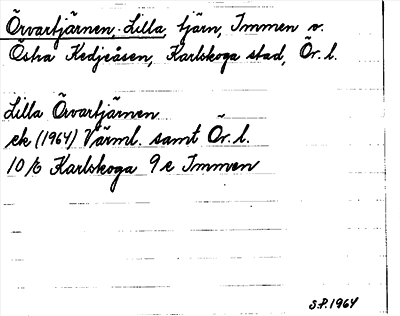 Örvartjärnen, Lilla, tjärn, Immen v.
Östra Kedjeåsen, Karlskoga stad, Ör. l.
Lilla Örvartjärnen
ek (1964) Värml. samt Ör. l.
10/6 Karlskoga 9 e Immen
S.P. 1964